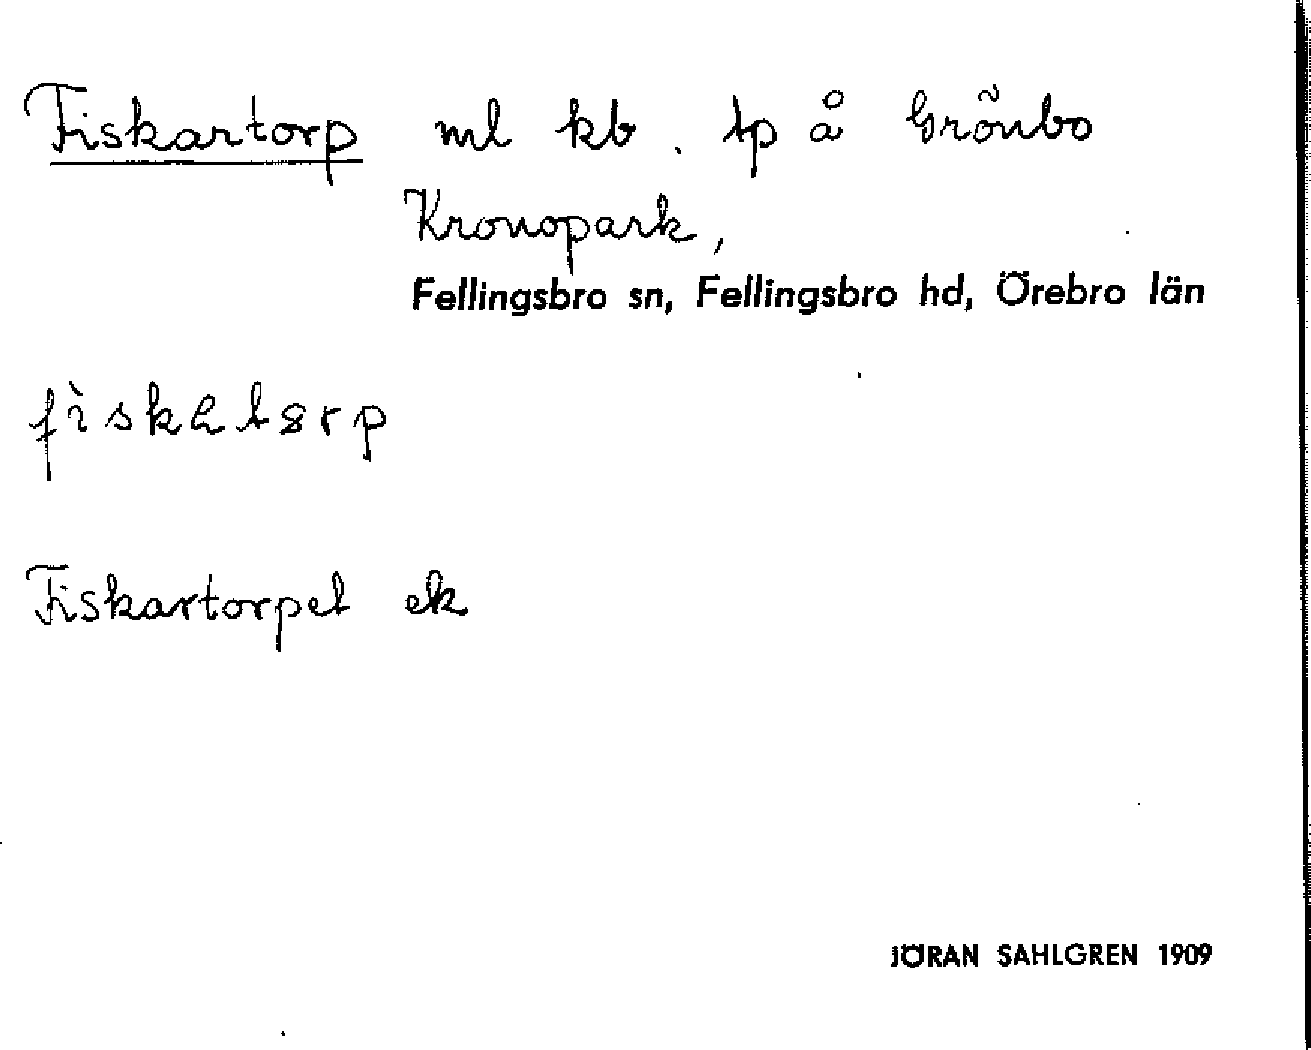 Fiskartorp ml kb. tp å Grönbo
Kronopark,
Fellingsbro sn, Fellingsbro hd, Örebro län
Fiskartorpet ek
JÖRAN SAHLGREN 1909